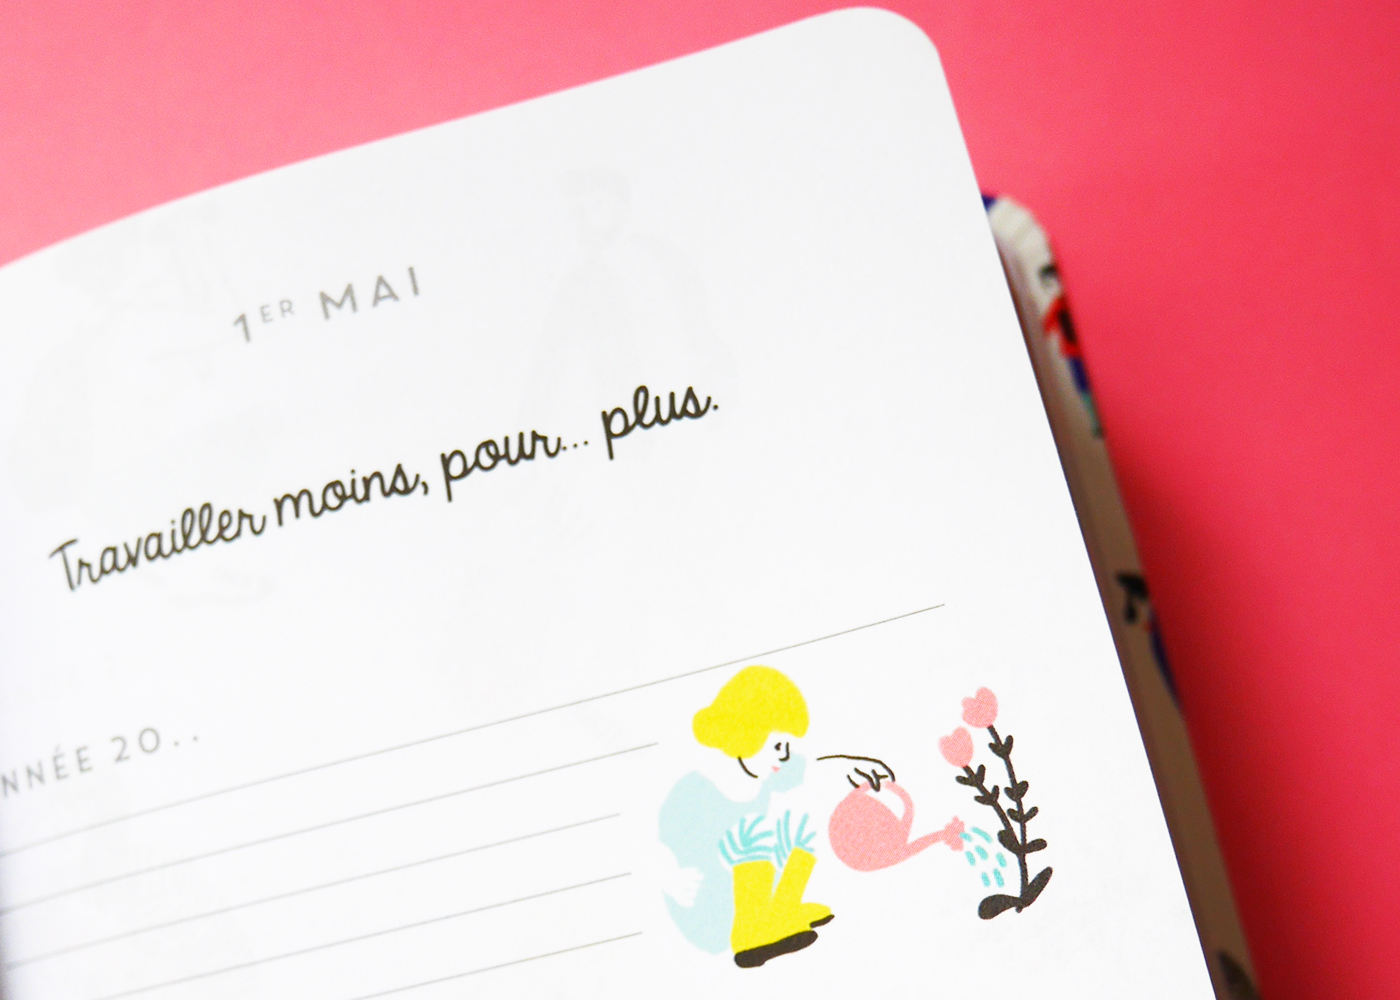 1ER MAI
Travailler moins, pour... plus.
NNÉE 20..